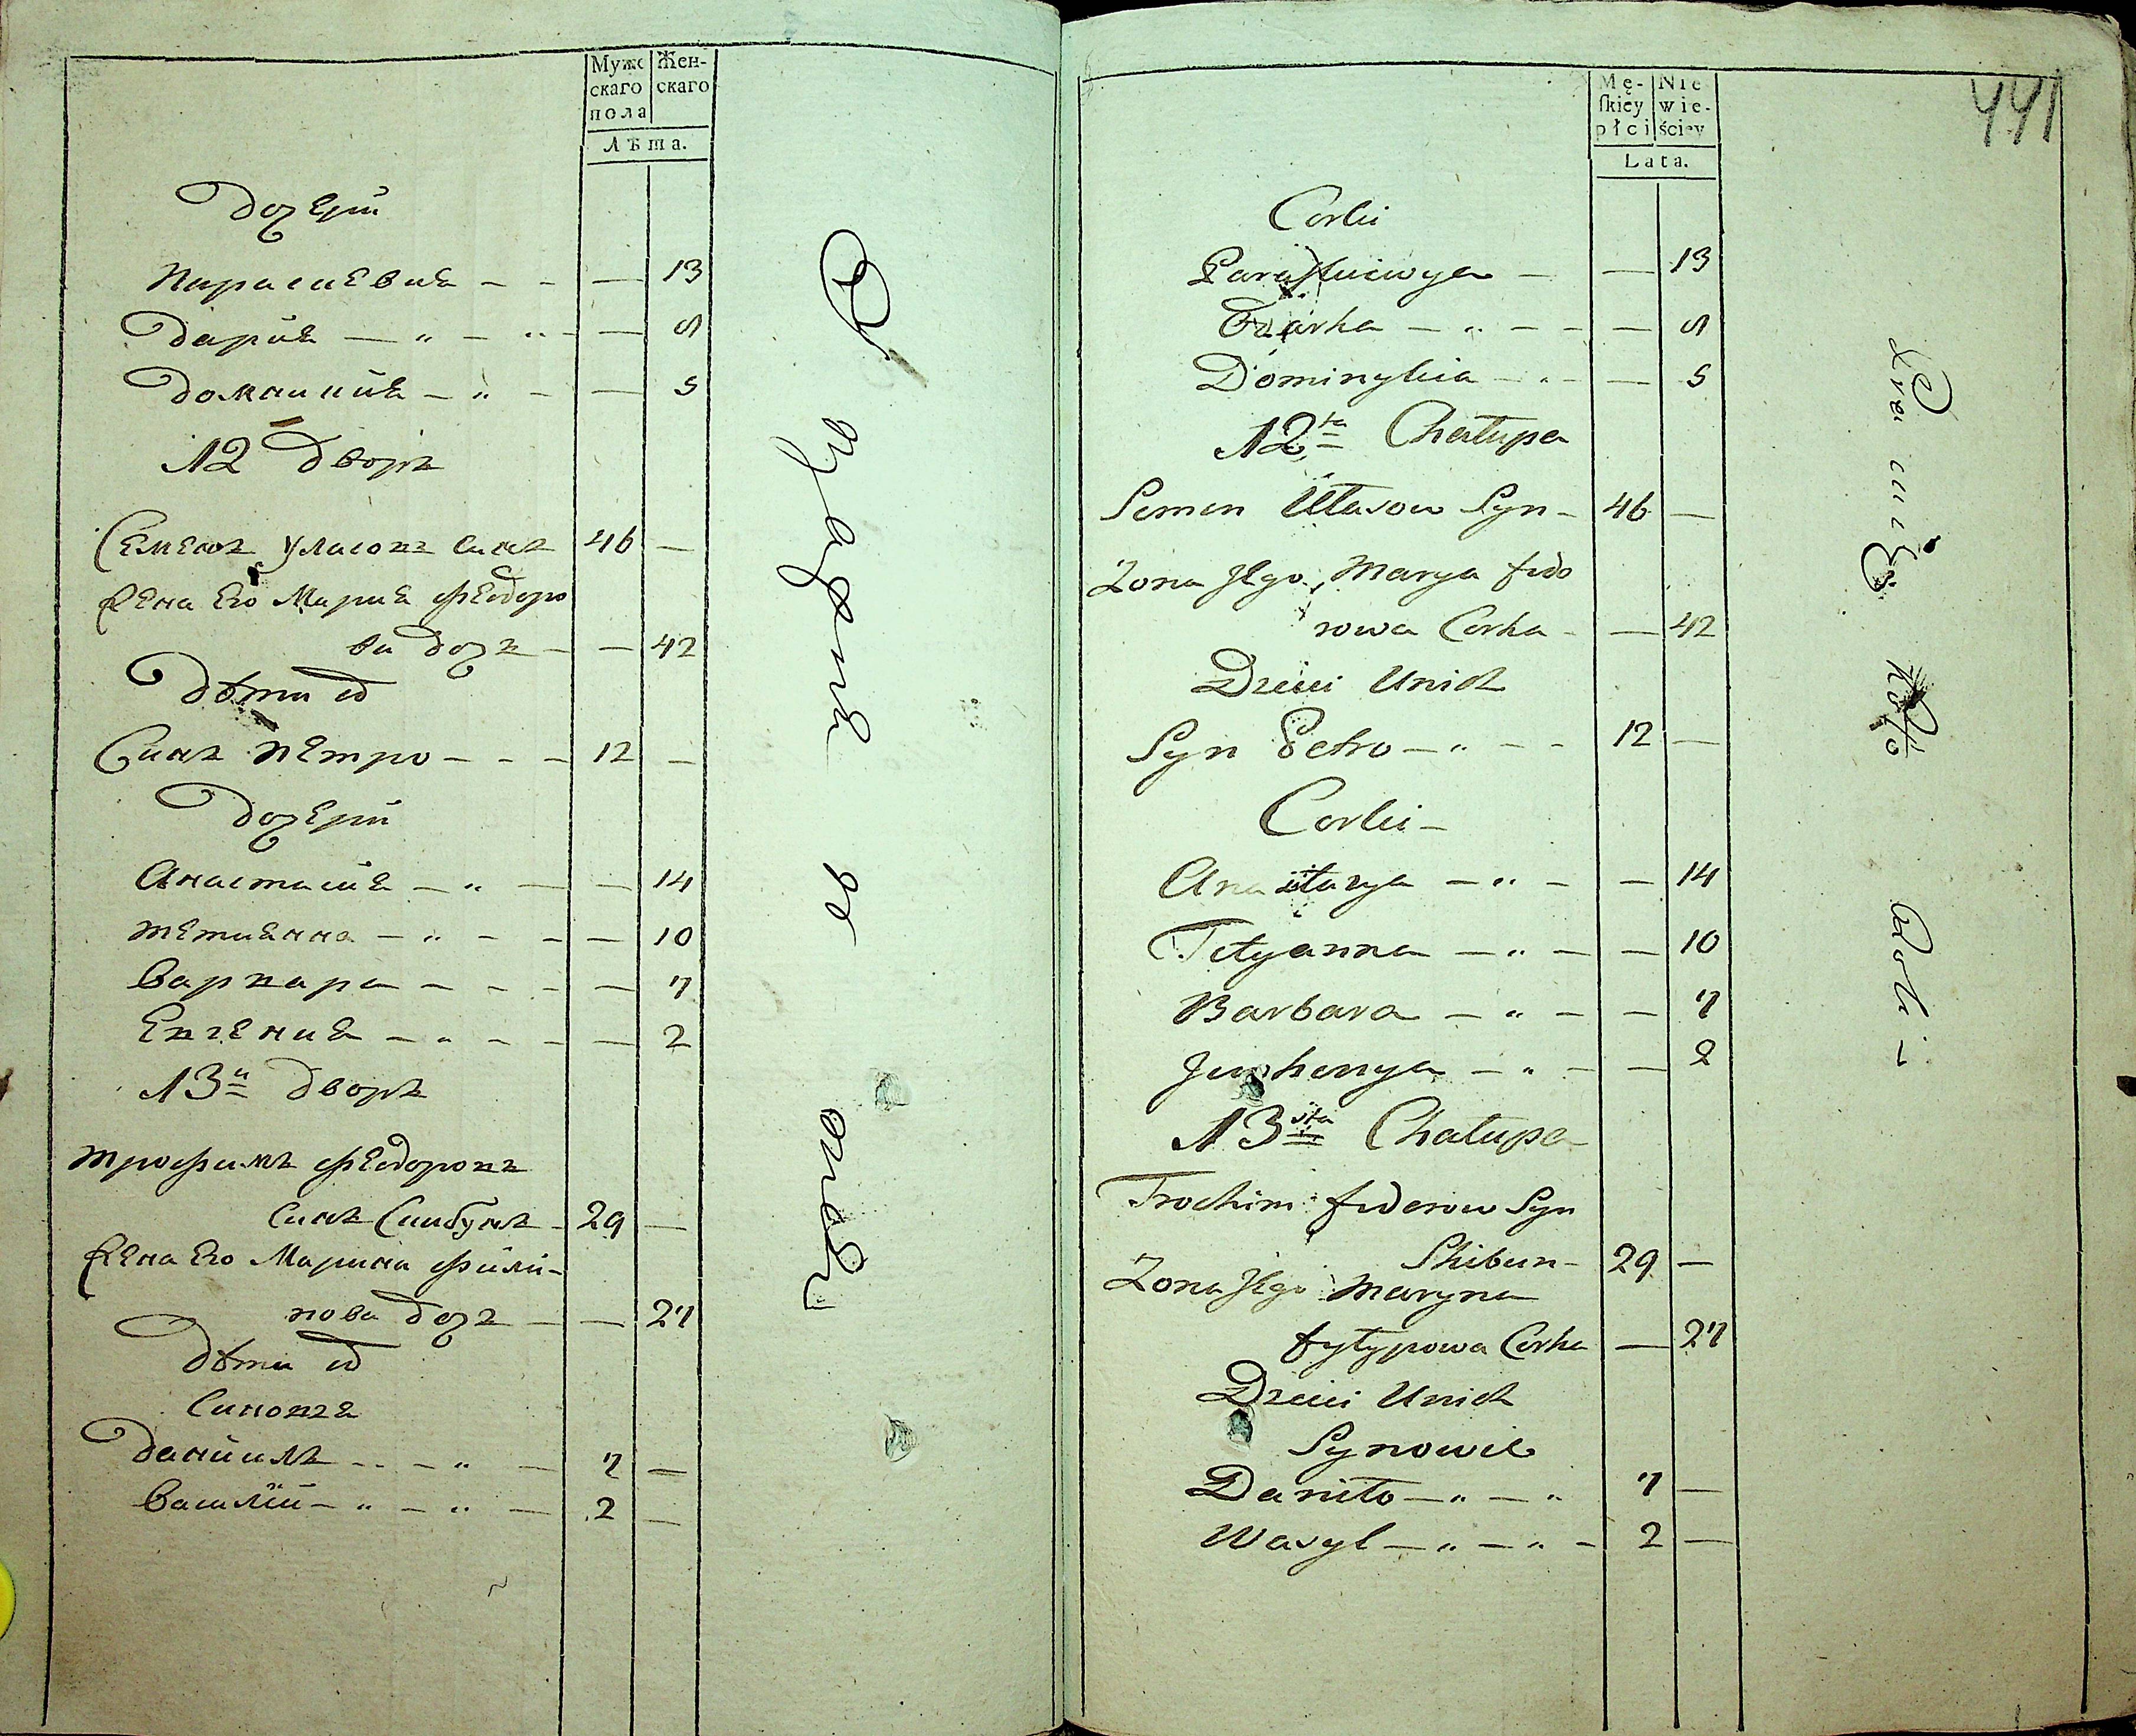 Мужс
скаго
пола
Жен-
скаго
Лѣта.
Дочери
Параскевия - - — 13
Дария — " — " — 9
Доминикия — " — 5
12 Дворъ
Семенъ Уласовъ синъ 46 —
Жена Его Мария Феодоро
ва дочъ — — 42
Дѣти
Синъ Петро - - - 12 —
Дочери
Анастасия — " — — 14
Тетианна — " — — 10
Варвара - - - — 7
Евгения — " - - — 2
13й Дворъ
Трофимъ Феодоровъ
синъ Скибунъ - 29 —
Жена Его Марина Фили-
пова дочъ — — 27
Дѣти
Синовья
Даниилъ - - " — 7 —
Василий - " — " — 2 —
441
Mę-
skiey
płci
Nie
wie-
ściey
Lata.
Corki
Paraskiewya — — 13
Darka — " — — 9
Dominykia — " — 5
12ta Chałupa
Semen Ułasow Syn - 46 —
Zona Jego Marya fedo
rowa Corka - — 42
Dzieci Unich
Syn Petro — " — - 12 —
Corki -
Anastazya — " — — 14
Tetyanna — " — — 10
Barbara — " — — 7
Jewhenya — " — — 2
13sta Chałupa
Trochim federow Syn
Skibun - 29 —
Zona Jego Maryna
fyłypowa Corka — 27
Dzieci Unich
Synowie
Daniło — " — " 7 —
Wasyl — " — " - 2 —